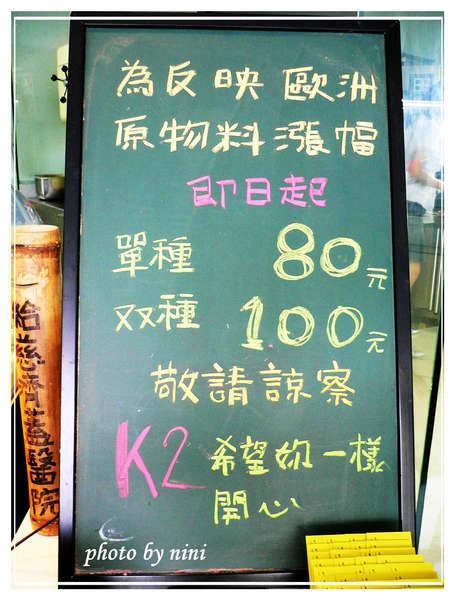 為反映歐洲
原物料漲幅
即日起
單種 80元
双種 100元
敬請諒察
K2 希望妳一樣
開心
給慈濟蓋醫院
photo by nini